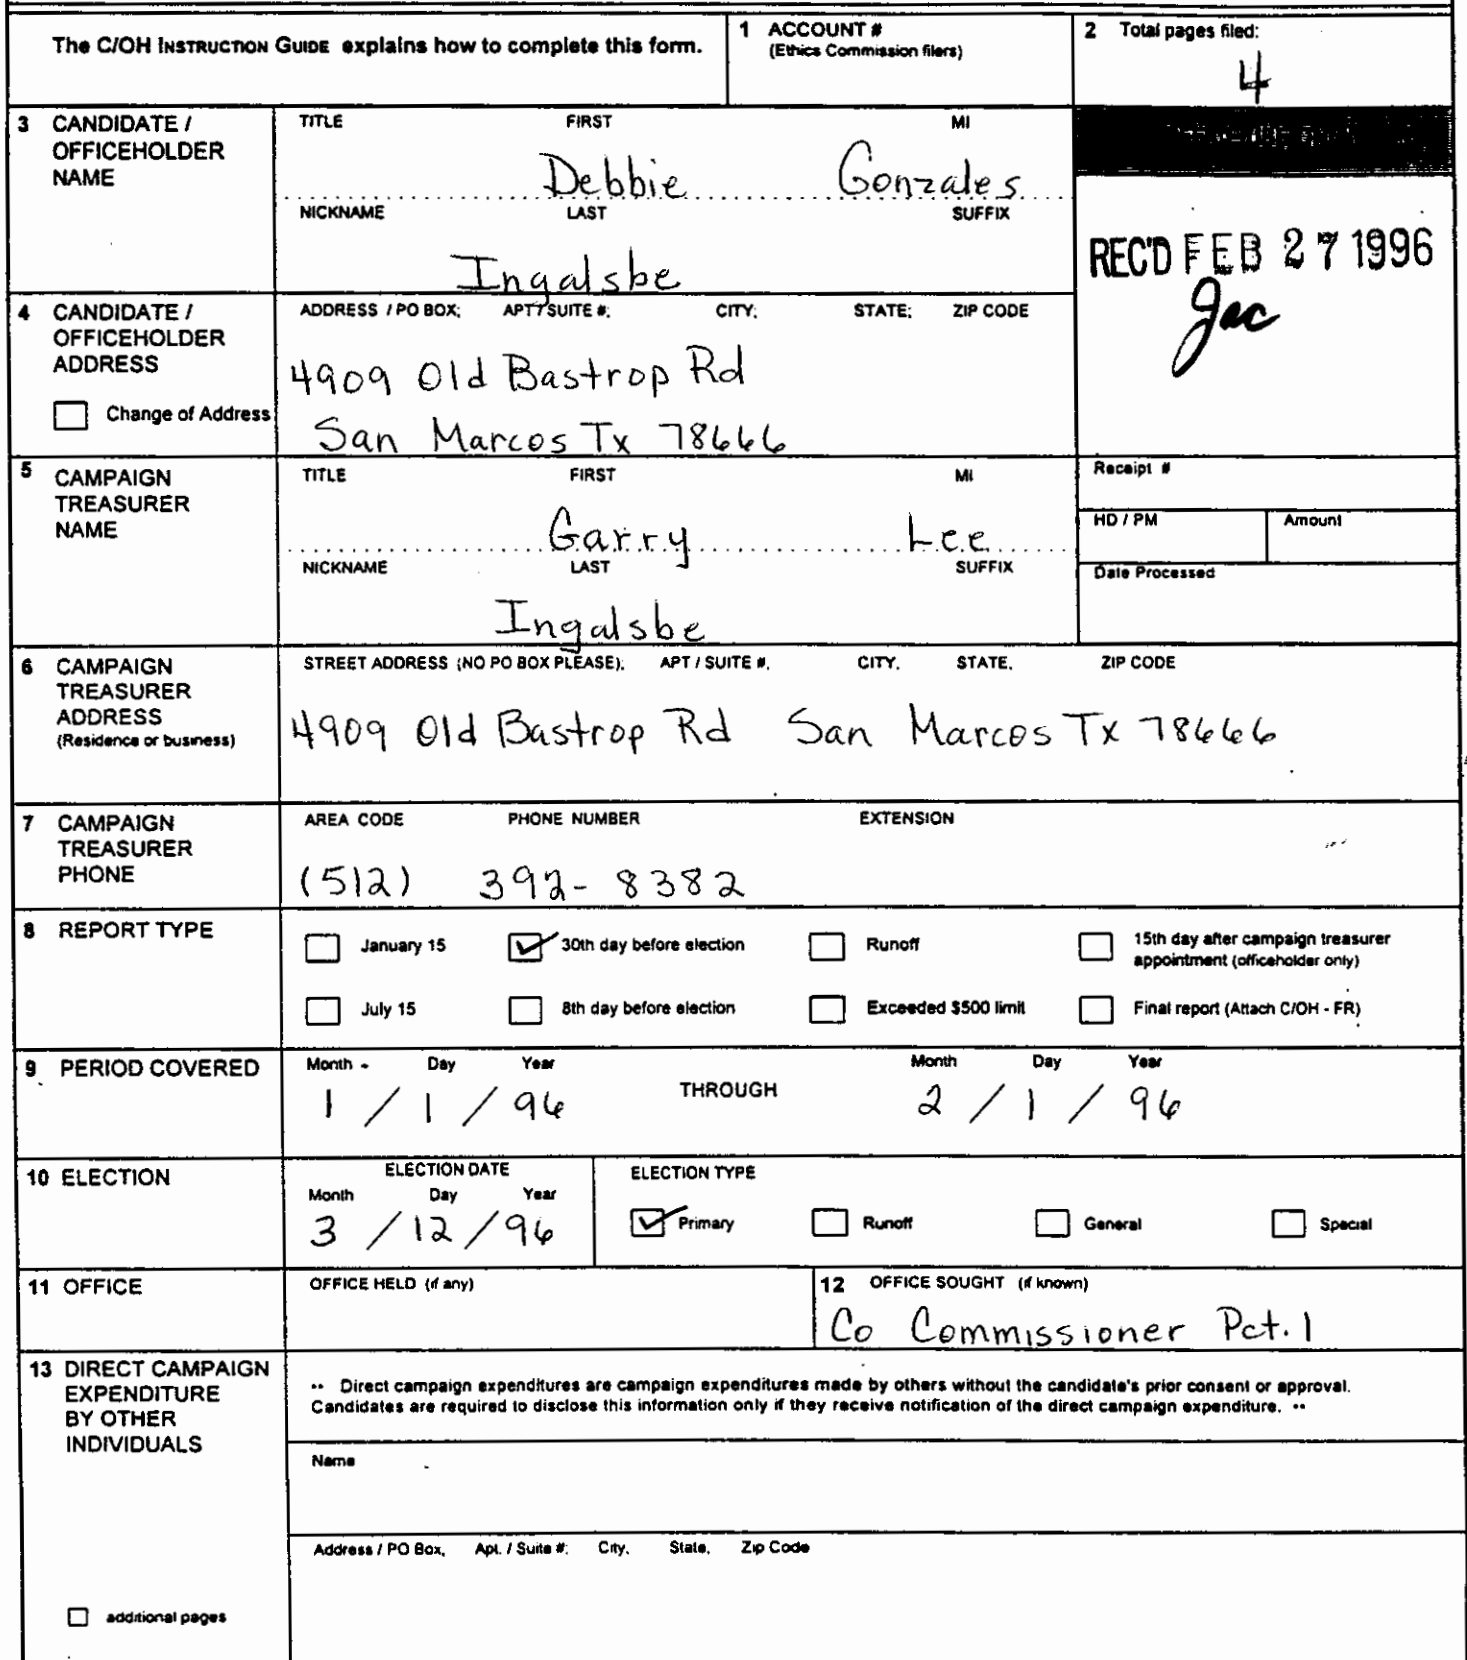 The C/OH INSTRUCTION GUIDE explains how to complete this form.
1 ACCOUNT #
(Ethics Commission filers)
2 Total pages filed:
4
3 CANDIDATE / OFFICEHOLDER NAME
TITLE FIRST MI
Debbie Gonzales
NICKNAME LAST SUFFIX
Ingalsbe
REC'D FEB 27 1996
4 CANDIDATE / OFFICEHOLDER ADDRESS
Change of Address
ADDRESS / PO BOX; APT / SUITE #; CITY; STATE; ZIP CODE
4909 Old Bastrop Rd
San Marcos Tx 78666
5 CAMPAIGN TREASURER NAME
TITLE FIRST MI
Garry Lee
NICKNAME LAST SUFFIX
Ingalsbe
Receipt #
HD / PM Amount
Date Processed
6 CAMPAIGN TREASURER ADDRESS
(Residence or business)
STREET ADDRESS (NO PO BOX PLEASE); APT / SUITE #, CITY, STATE, ZIP CODE
4909 Old Bastrop Rd San Marcos Tx 78666
7 CAMPAIGN TREASURER PHONE
AREA CODE PHONE NUMBER EXTENSION
(512) 392-8382
8 REPORT TYPE
January 15 30th day before election Runoff 15th day after campaign treasurer appointment (officeholder only)
July 15 8th day before election Exceeded $500 limit Final report (Attach C/OH - FR)
9 PERIOD COVERED
Month Day Year THROUGH Month Day Year
1 / 1 / 96 2 / 1 / 96
10 ELECTION
ELECTION DATE
Month Day Year
3 / 12 / 96
ELECTION TYPE
Primary Runoff General Special
11 OFFICE
OFFICE HELD (if any)
12 OFFICE SOUGHT (if known)
Co Commissioner Pct. 1
13 DIRECT CAMPAIGN EXPENDITURE BY OTHER INDIVIDUALS
•• Direct campaign expenditures are campaign expenditures made by others without the candidate's prior consent or approval.
Candidates are required to disclose this information only if they receive notification of the direct campaign expenditure. ••
Name
Address / PO Box, Apt. / Suite #; City, State, Zip Code
additional pages